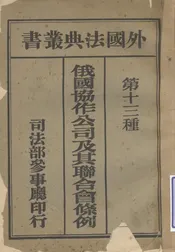 書叢典法國外
第十三種
俄國協作公司及其聯合會條例
司法部參事廳印行